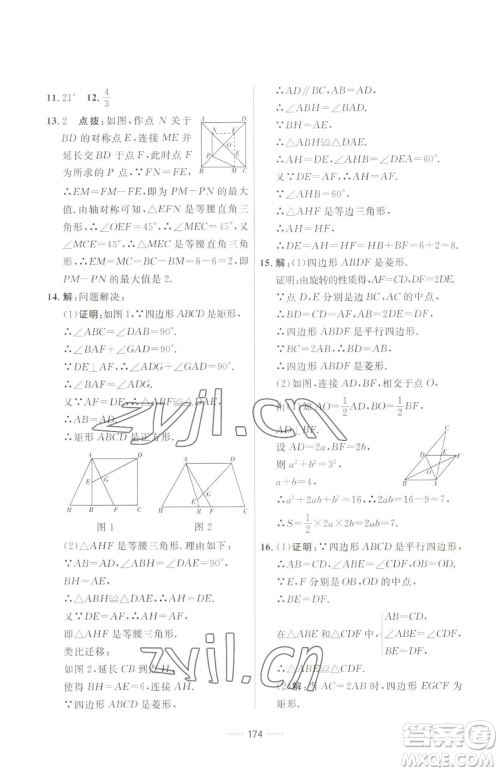 11. 21° 12. 4/3
13. 2 点拨:如图,作点 N 关于
BD 的对称点 E,连接 ME 并
延长交 BD 于点 F,此时点 F
为所求的 P 点,∵FN=FE,
∴EM=FM−FE,即为 PM−PN 的最大
值.由轴对称可知,△EFN 是等腰直角三
角形,∴∠OEF=45°,∠OFE=45°.又
∠MCE=45°,∴△EMC 是等腰直角三角
形,∴EM=MC=BC−BM=8−6=2,即
PM−PN 的最大值是 2.
14. 解:问题解决:
(1)证明:如图 1∵四边形 ABCD 是矩形,
∴∠ABC=∠DAB=90°.
∴∠BAF+∠GAD=90°.
∵DE⊥AF,∴∠ADG+∠GAD=90°.
∴∠BAF=∠ADG.
又∵AF=DE,∴△ABF≌△DAE.
∴AB=AD.
∴矩形 ABCD 是正方形.
A D
E G
B F C
图 1
A D
E G
H B F C
图 2
(2)△AHF 是等腰三角形.理由:
∵AB=AD,∠ABH=∠BAD=90°,
BH=AE,
∴△ABH≌△DAE.∴AH=DE.
又∵DE=AF,∴AH=AF.
即△AHF 是等腰三角形.
类比迁移:
如图 2,延长 CB 到点 H,
使得 BH=AE=6,连接 AH.
∵四边形 ABCD 是菱形,
∴AD∥BC,AB=AD,
∴∠ABH=∠BAD,
∵BH=AE,
∴△ABH≌△DAE.
∴AH=DE,∠AHB=∠DEA=60°.
又∵DE=AF,∴AH=AF.
∵∠AHB=60°,
∴△AHF 是等边三角形,
∴AH=HF,
∴DE=AH=HF=BH+BF=6+2=8.
15. 解:(1)四边形 ABDF 是菱形.
证明:由旋转的性质得,AF=CD,DF=AC.
∵D,B 是 BC,AC 的中点,
∴BD=CD=AF,AB=AC=DF,
∴四边形 ABDF 是平行四边形.
又∵AB=BD,
∴四边形 ABDF 是菱形.
(2)如图,连接 AD,BF 相交于点 O,
由(1)知AO=1/2AD,BO=1/2BF,
AD⊥BF.
设 AD=2a,BF=2b,
则 a²+b²=4²,
a+b=6,
∴a²+2ab+b²=16+2ab=36,
∴2ab=20.
∴S=1/2×2a×2b=2ab=20.
16. (1)证明:∵四边形 ABCD 是平行四边形,
∴AB=CD,∠ABE=∠CDF,OB=OD,
∵点 E,F 分别为 OB,OD 的中点,
∴BE=DF.
AB=CD,
在△ABE 和△CDF 中,∠ABE=∠CDF,
BE=DF,
∴△ABE≌△CDF.
(2)解:当 AC=2AB 时,四边形 EGCF 为
矩形.
174